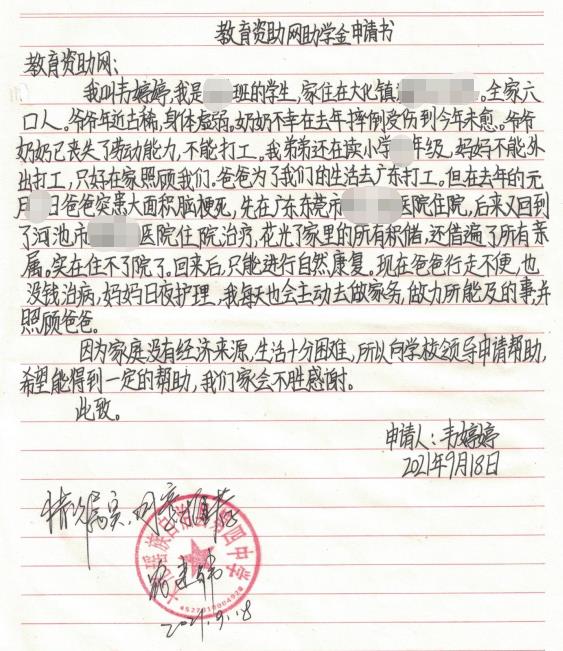 教育资助网助学金申请书
教育资助网：
我叫韦婷婷，我是班的学生，家住在大化镇。全家六
口人。爷爷年近古稀，身体虚弱。奶奶不幸在去年摔倒受伤到今年未愈。爷爷
奶奶已丧失了劳动能力，不能打工。我弟弟还在读小学年级，妈妈不能外
出打工，只好在家照顾我们。爸爸为了我们的生活去广东打工。但在去年的元
月日爸爸突患大面积脑梗死，先在广东东莞市医院住院，后来又回到
了河池市医院住院治疗，花光了家里的所有积储，还借遍了所有亲
属。实在住不了院了。回来后，只能进行自然康复。现在爸爸行走不便，也
没钱治病，妈妈日夜护理，我每天也会主动去做家务，做力所能及的事，并
照顾爸爸。
因为家庭没有经济来源，生活十分困难，所以向学校领导申请帮助，
希望能得到一定的帮助，我们家会不胜感谢。
此致。
申请人：韦婷婷
2021年9月18日
情况属实，同意推荐
2021.9.18